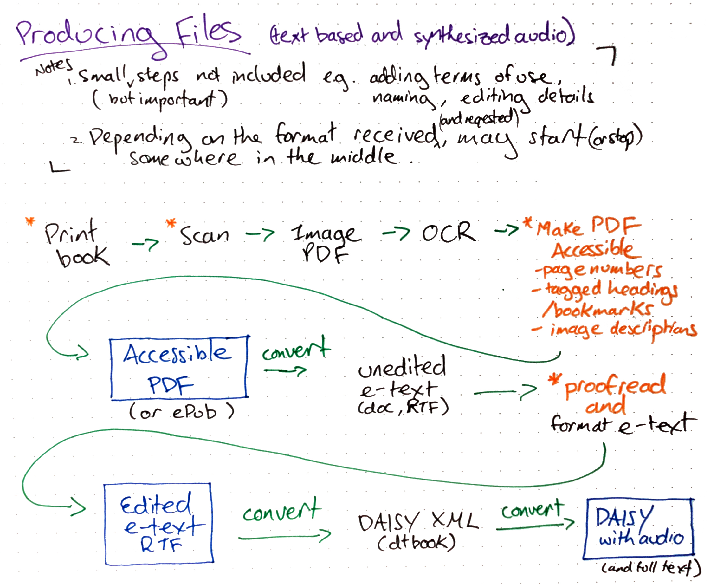 Producing Files (text based and synthesized audio)
Notes
1. Small, steps not included e.g. adding terms of use,
(but important) naming, editing details
(and reqested)
2. Depending on the format received, may start (or stop)
somewhere in the middle.
* Print book → * Scan → Image PDF → OCR → * Make PDF
Accessible
- page numbers
- tagged headings
/bookmarks
- image descriptions
Accessible
PDF
(or ePub)
convert
unedited
e-text
(doc, RTF)
* proofread
and
format e-text
Edited
e-text
RTF
convert
DAISY XML
(dtbook)
convert
DAISY
with audio
(and full text)